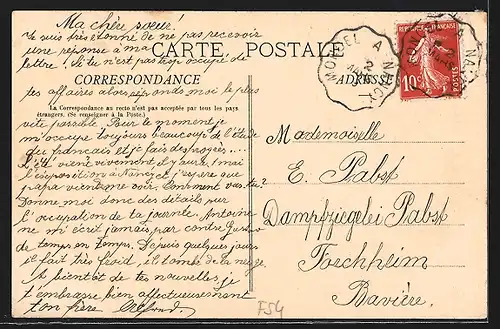 Ma chère soeur!
Je suis très étonné de ne pas recevoir
une réponse à ma
lettre. Si tu n'est pas trop occupé de
CARTE POSTALE
CORRESPONDANCE
ADRESSE
tes affaires alors réponds moi le plus
La Correspondance au recto n'est pas acceptée par tous les pays
étrangers. (Se renseigner à la Poste.)
vite possible. Pour le moment je
m'occupe toujours beaucoup de l'étude
du français et je fais des progrès...
L'été vient vivement, il y aura (mai
l'exposition à Nancy et j'espère que
papa vient me voir. Comment vas-tu?
Donne moi donc des détails sur
l'occupation de ta journée. Antoine
ne m'écrit jamais par contre
de temps en temps. Depuis quelques jours
il fait très froid, il tombe de la neige.
A bientôt de tes nouvelles, je
t'embrasse bien affectueusement
ton frère
Mademoiselle
E. Pabst
Dampfziegelei Pabst
Forchheim
Bavière.
F54
A NANCY
10
POSTES